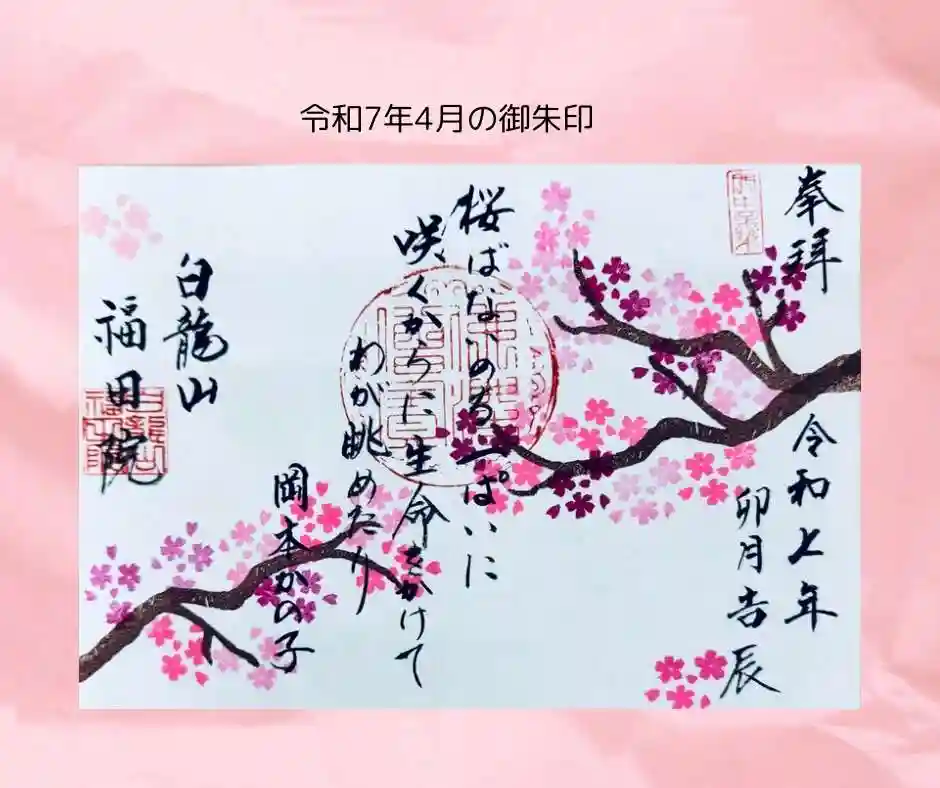 令和7年4月の御朱印
奉拝
令和七年
卯月吉辰
桜ばないのち一ぱいに
咲くからに生命をかけて
わが眺めたり
岡本かの子
白龍山
福田院